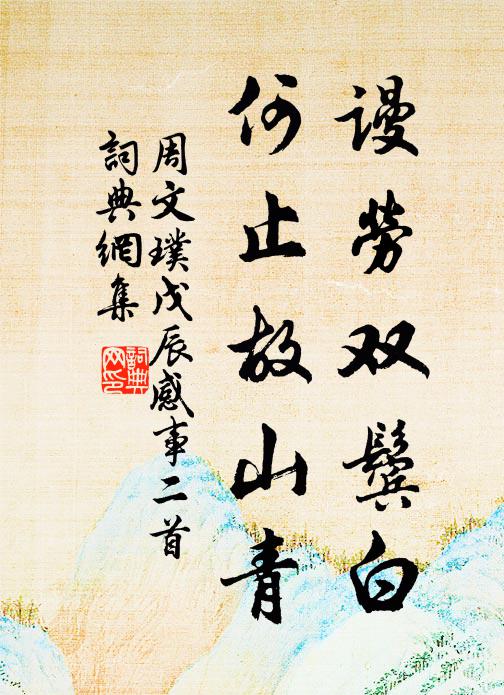 谩劳双鬓白
何止故山青
周文璞戊辰感事二首
詞典網集
詞典網印